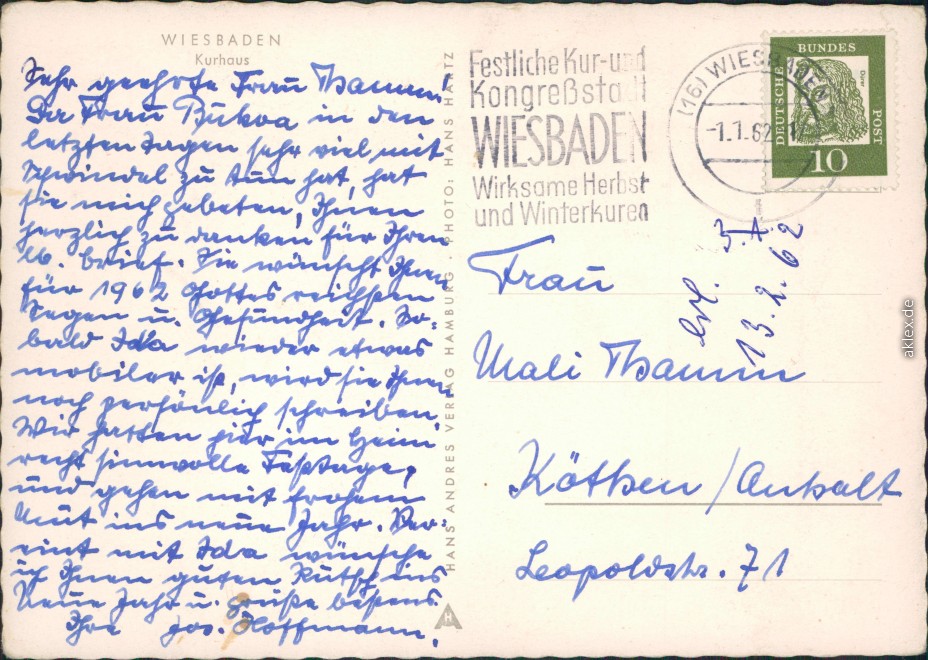 WIESBADEN
Kurhaus
Sehr geehrte Frau Thamm!
Da Frau Bukva in den
letzten Tagen sehr viel mit
Schwindel zu tun hat, hat
sie mich gebeten, Ihnen
herzlich zu danken für Ihren
lb. Brief. Sie wünscht Ihnen
für 1962 Gottes reichsten
Segen u. Gesundheit. So-
bald Ida wieder etwas
mobiler ist, wird sie Ihnen
noch persönlich schreiben.
Wir hatten hier im Heim
recht sinnvolle Festtage,
und gehen mit frohem
Mut ins neue Jahr. Ver-
eint mit Ida wünsche
ich Ihnen guten Rutsch ins
Neue Jahr u. grüße bestens
Ihre Jos. Hoffmann.
HANS ANDRES VERLAG HAMBURG · PHOTO: HANS HARTZ
H
Festliche Kur- und
Kongreßstadt
WIESBADEN
Wirksame Herbst
und Winterkuren
(16) WIESBADEN
-1.1.62
DEUTSCHE
BUNDES
POST
Dürer
10
3. A.
erl. 13.2.62
Frau
Mali Thamm
Köthen/Anhalt
Leopoldstr. 71
aklex.de